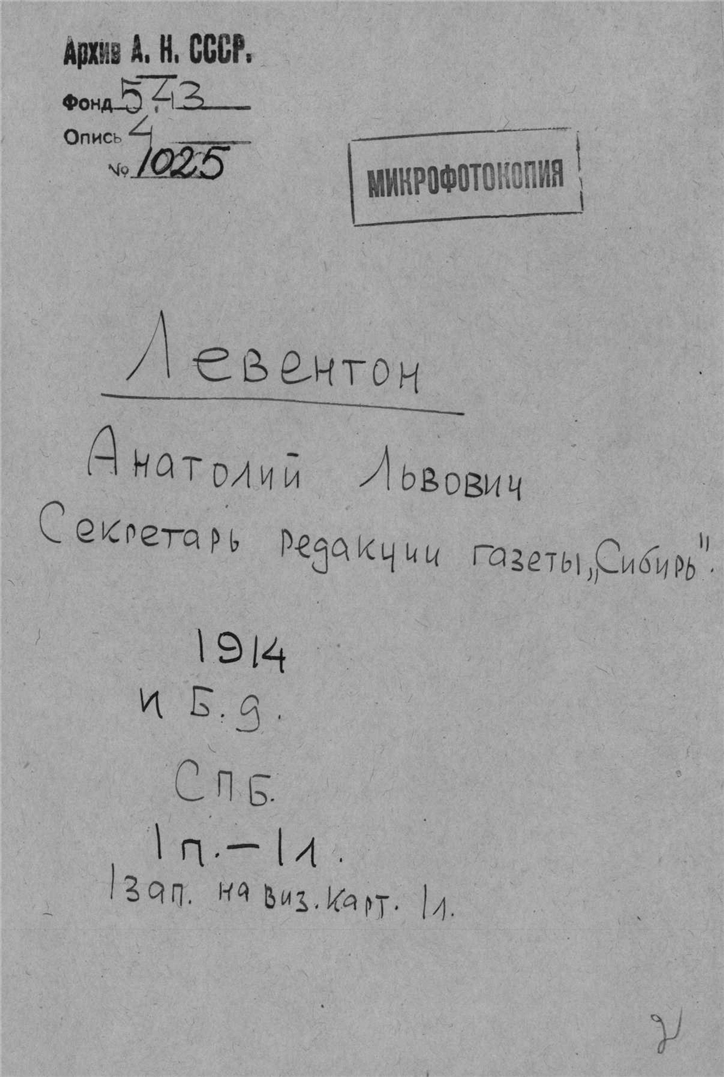 Архив А. Н. СССР.
Фонд 543
Опись 4
№ 1025
МИКРОФОТОКОПИЯ
Левентон
Анатолий Львович
Секретарь редакции газеты „Сибирь".
1914
и Б.д.
СПБ.
1п.–1л.
1зап. на виз. карт. 1л.